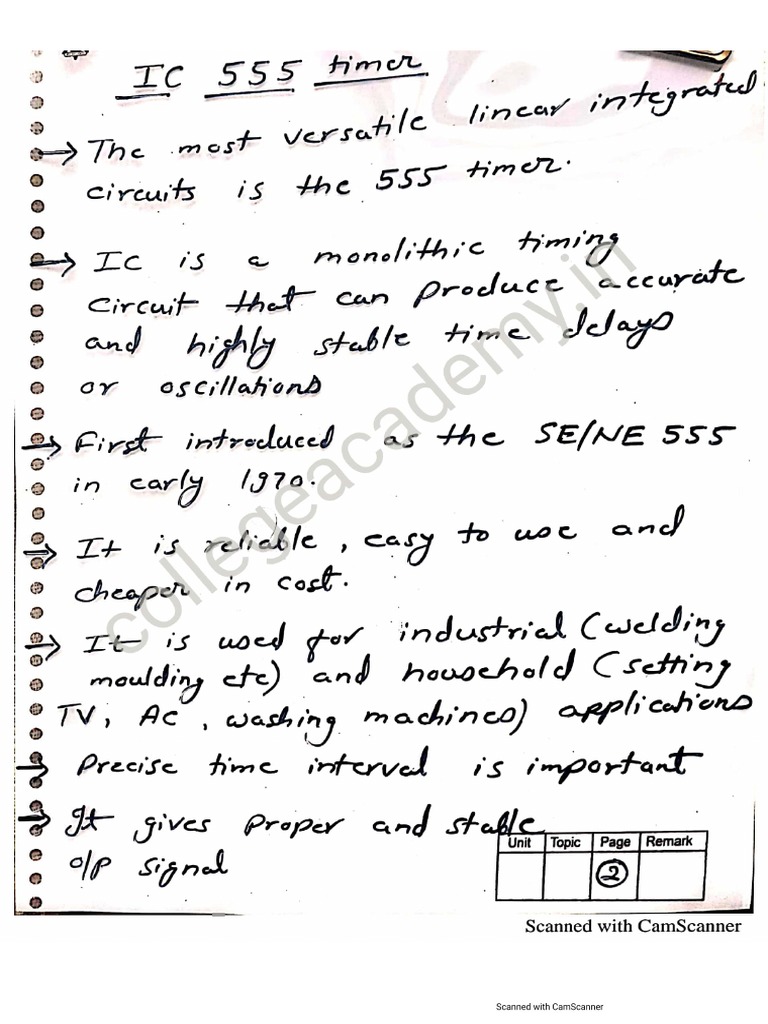 IC 555 timer
→ The most versatile linear integrated
circuits is the 555 timer.
→ IC is a monolithic timing
circuit that can produce accurate
and highly stable time delays
or oscillations
→ First introduced as the SE/NE 555
in early 1970.
→ It is reliable, easy to use and
cheaper in cost.
→ It is used for industrial (welding
moulding etc) and household (setting
TV, AC, washing machines) applications
→ Precise time interval is important
→ It gives proper and stable
o/p signal
Unit Topic Page Remark
2
Scanned with CamScanner
Scanned with CamScanner
collegeacademy.in